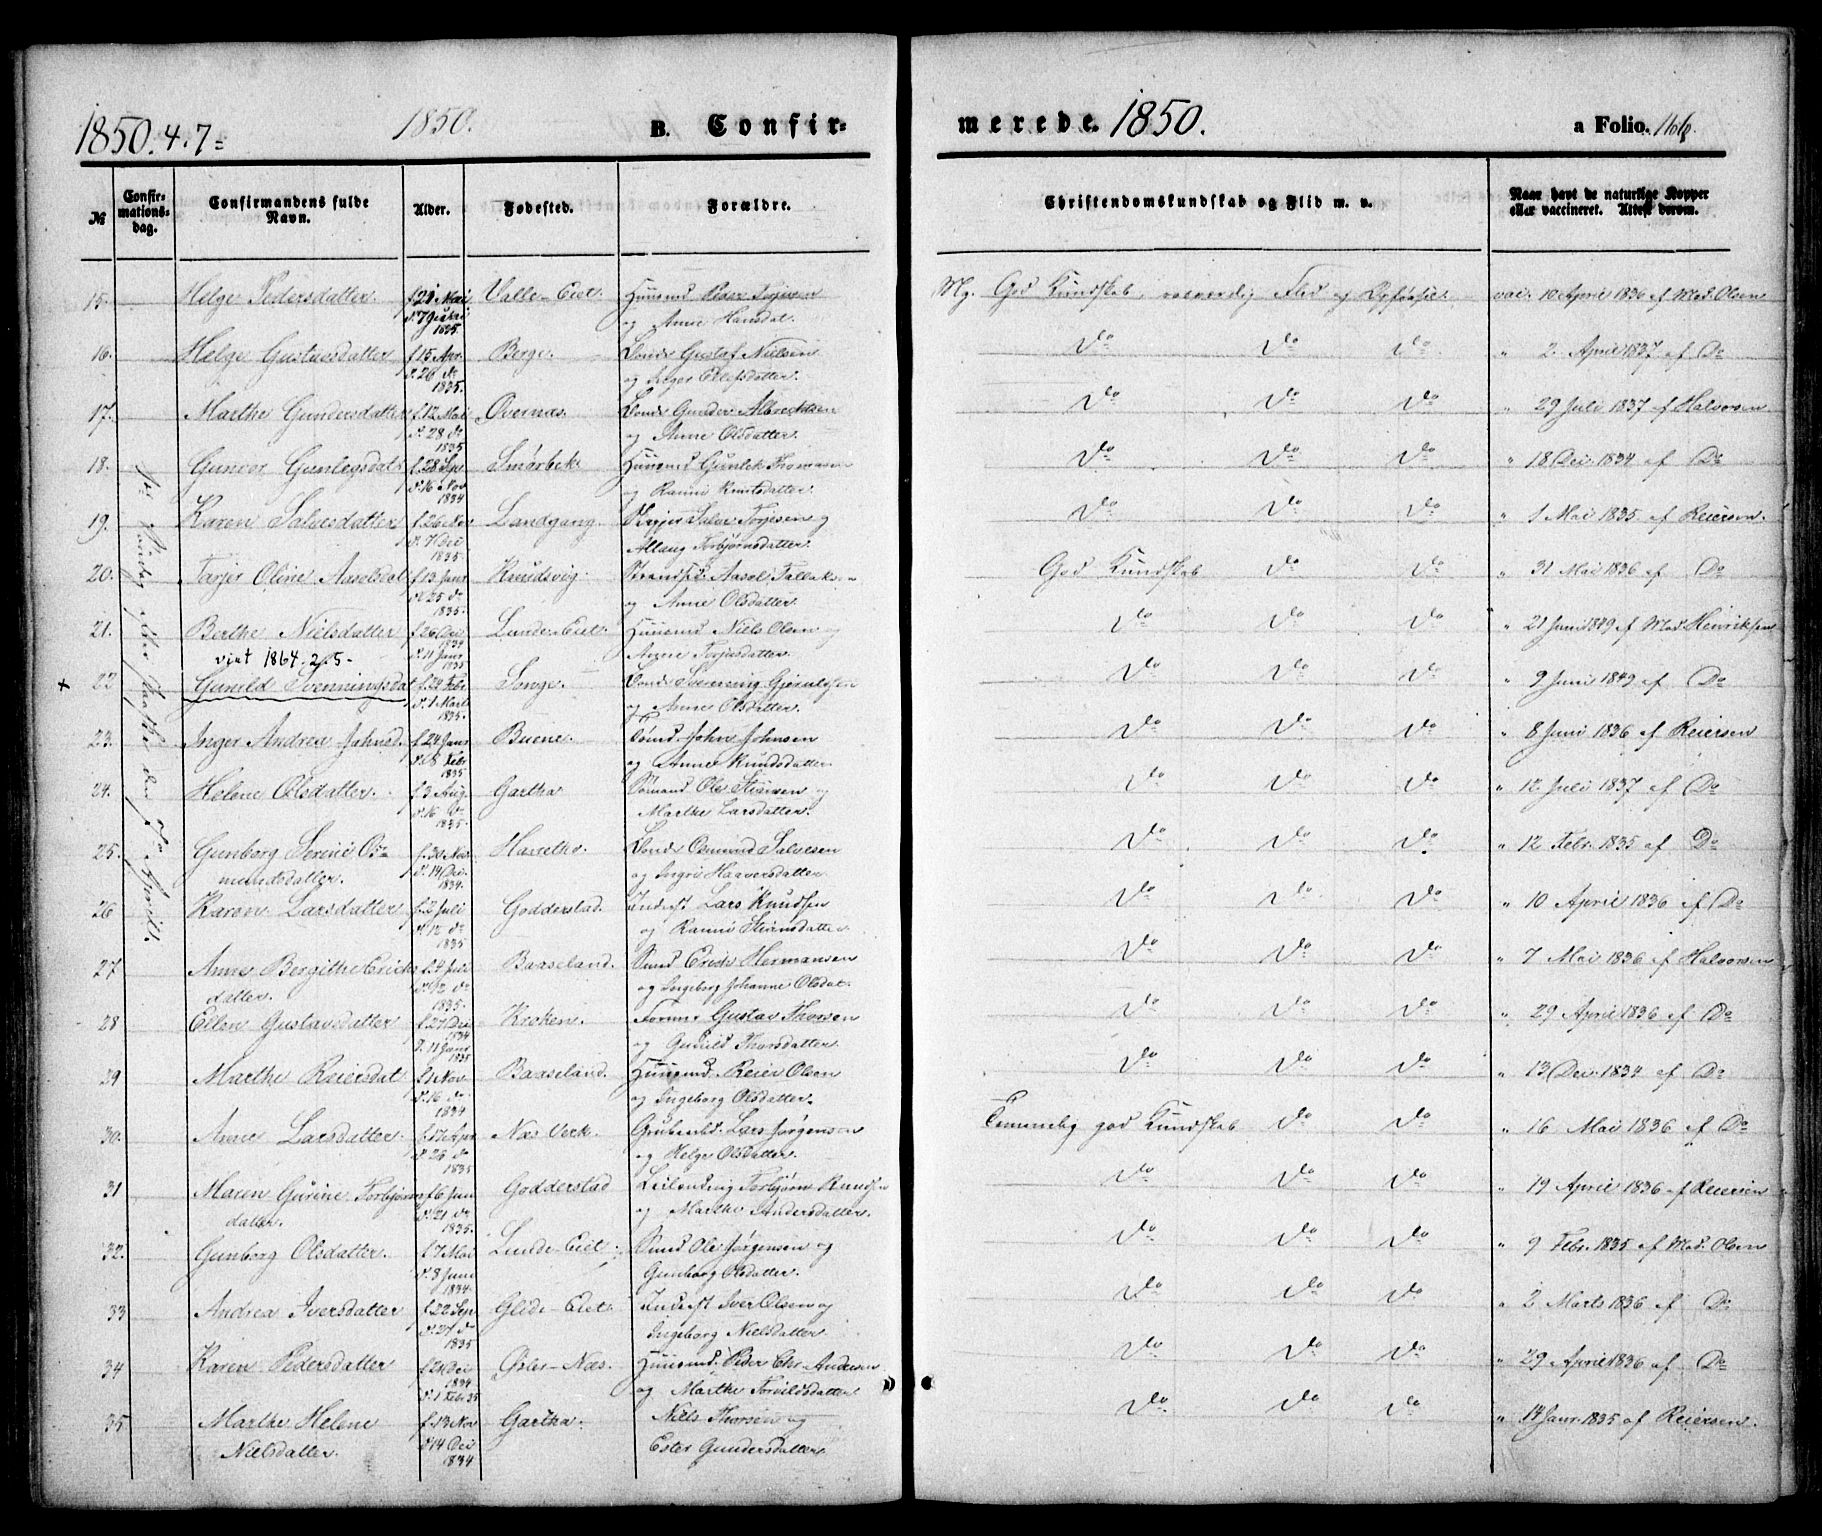 1850. 4. 7 1850. B. Confir-
merede. 1850. a Folio. 166.
№
Confir-
mations-
dag.
Confirmandens fulde
Navn.
Alder.
Fødested.
Forældre.
Christendomskundskab og Flid m. v.
Naar havt de naturlige Kopper
eller vaccineret. Attest derom.
15. Helge Pedersdatter. f. 21 Mai Valle-Eiet. Huusmd Peder Torjusen Mg. God Kundskab, roesværdig Flid og Opførsel. vac. 10 April 1836 af Mad. Olsen
1835. og Anne Hansdat.
16. Helge Gustavsdatter f. 15 Apr. Berge. Bonde Gustaf Nielsen Do Do Do " 2 April 1837 af Do
d. 26 do
1835. og Inger Olefsdatter.
17. Marthe Gundersdatter f. 12 Mai Overnæs. Bonde Gunder Albrechtsen Do Do Do " 29 Juli 1837 af Halvorsen
d. 28 do
1835 og Anne Olsdatter.
18. Gunvor Gunlegsdat f. 28 Sep Smørbek. Huusmd Gunlek Thomasen Do Do Do " 18 Dec. 1834 af Do
d. 16 Nov
1834 og Ranni Knutsdatter.
19. Karen Salvesdatter f. 26 Nov Landgang. Salve Torjesen og Do Do Do " 1 Mai 1835 af Reiersen.
d. 7 Dec
1835. Aslaug Torbjørnsdatter.
20. Tarjer Oline Aaselsdat f. 13 Janr Knudsvig. Strandsd. Aasel Tallaks God Kundskab Do Do " 31 Mai 1836 af Do
d. 25 do
1835. og Anne Olsdatter.
21. Berthe Nielsdatter f. 26 Dec Lunde-Eiet. Huusmd Niels Olsen og Do Do Do " 21 Juni 1849 af Mad. Henriksen
1834
viet 1864. 2/5 - d. 11 Janr
1835 Anne Torjusdatter.
x 22 Gunild Svenningsdat f. 22 Febr Songe. Bonde Svenning Gjerulfsen Do Do Do " 9 Juni 1849 af Do
d. 1 Marts
1835. og Anne Olsdatter.
23. Inger Andrea Johnsd. f. 24 Janr Buene. Sømd John Johnsen Do Do Do " 8 Juni 1836 af Reiersen
d. 8 Febr
1835 og Anne Knudsdatter
24. Helene Olsdatter. f. 3 Aug. Gartha Sømand Ole Stiansen og Do Do Do " 12 Juli 1837 af Do
d. 16 do
1835. Marthe Larsdatter.
25. Gunborg Serine Os- f. 30 Nov. Havreths. Bonde Osmund Salvesen Do Do Do " 12 Febr. 1835 af Do
mundsdatter. d. 14 Dec.
1834. og Ingri Haaversdatter.
26 Karen Larsdatter f. 2 Juli Godderstad. Inderst Lars Knudsen Do Do Do " 10 April 1836 af Do
d. 12 do
1835 og Ranni Stiansdatter
27 Anne Bergithe Erichs f. 4 Juli Baaseland. Smd Erich Hermansen Do Do Do " 7 Mai 1836 af Halvorsen
datter. d. 12 do
1835. og Ingeborg Johanne Olsdat.
28 Ellen Gustavsdatter f. 27 Dec Kroken. Gustav Thorsen Do Do Do " 29 April 1836 af Do
1834
d. 11 Janr
1835 og Gunild Thorsdatter
29 Marthe Reiersdat f. 1 Nov Baaseland. Huusmd. Reier Olsen Do Do Do " 13 Dec. 1834 af Do
d. 16 do
1834 og Ingeborg Olsdatter.
30. Anne Larsdatter. f. 17 Apr Næs Verk. Grubearb. Lars Jørgensen Temmelig god Kundskab Do Do " 16 Mai 1836 af Do
d. 26 do
1835 og Helge Olsdatter.
31 Maren Gurine Torbjørn f. 6 Jun Godderstad Leilending Torbjørn Knudsen Do Do Do " 19 April 1836 af Reiersen
datter. d. 21 do
1835. og Marthe Andersdatter.
32. Gunborg Olsdatter. f. 7 Mai Lunde-Eiet. Smd Ole Jørgensen og Do Do Do " 9 Febr. 1835 af Mad. Olsen
d. 8 Juni
1834. Gunborg Olsdatter.
33 Andrea Iversdatter f. 22 Sep Glide-Eiet. Inderst Iver Olsen og Do Do Do " 2 Marts 1836 af Do
d. 27 do
1835 Ingeborg Nielsdatter
34 Karen Pedersdatter f. 21 Dec Osler-Næs. Huusmd. Peder Chr Andersen Do Do Do " 29 April 1836 af Do
1834
d. 1 Febr. 35 og Marthe Torvildsdatter
35 Marthe Helene f. 13 Nov Gartha. Niels Thorsen og Do Do Do " 14 Janr. 1835 af Reiersen.
Nielsdatter. d. 14 Dec
1834 Ester Gundersdatter
Søndag efter Paaske den 7de April.